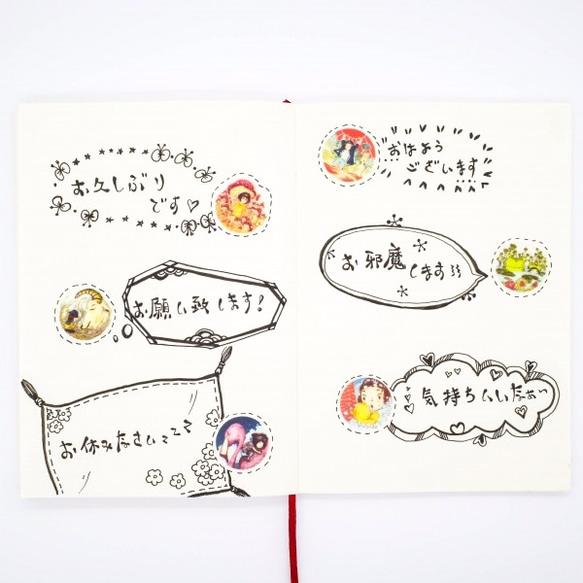 お久しぶり
です♡
お願い致します!
お休みなさいzzz
おはよう
ございます
お邪魔
します
気持ちいいなぁ〜